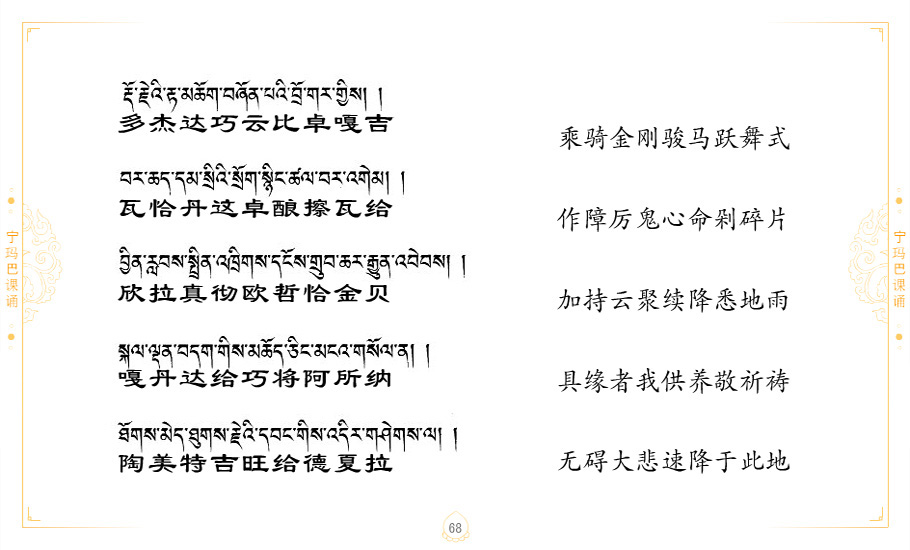 རྡོ་རྗེའི་རྟ་མཆོག་བཞོན་པའི་བྲོ་གར་གྱིས། །
多杰达巧云比卓嘎吉
乘骑金刚骏马跃舞式
བར་ཆད་དམ་སྲིའི་སྲོག་སྙིང་ཚལ་བར་འགེམ། །
瓦恰丹这卓酿擦瓦给
作障厉鬼心命剁碎片
བྱིན་རླབས་སྤྲིན་འཁྲིགས་དངོས་གྲུབ་ཆར་རྒྱུན་འབེབས། །
欣拉真彻欧哲恰金贝
加持云聚续降悉地雨
སྐལ་ལྡན་བདག་གིས་མཆོད་ཅིང་མངའ་གསོལ་ན། །
嘎丹达给巧将阿所纳
具缘者我供养敬祈祷
ཐོགས་མེད་ཐུགས་རྗེའི་དབང་གིས་འདིར་གཤེགས་ལ། །
陶美特吉旺给德夏拉
无碍大悲速降于此地
宁玛巴课诵
宁玛巴课诵
68